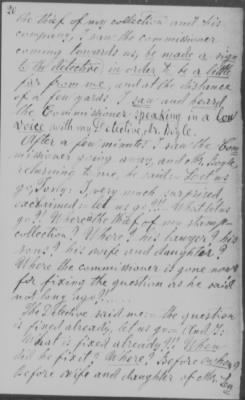 20
the thief of my collection and his
company, I saw the commissioner
coming towards us, he made a sign
to the detective, in order to be a little
far from me, and at the distance
of a few yards I saw and heard
the Commissioner speaking in a low
voice with my Detective, Mr. Doyle.
After a few minutes I saw the Com
missioner going away, and Mr. Doyle
returning to me, he said: Let us
go, Only: I, very much surprised
exclaimed: let us go?!!! What let us
go?! Where the thief of my stamp
collection? Where? his lawyer? his
sons? his wife and daughter?
Where the commissioner is gone now
for fixing the question as he said
not long ago?!
The Detective said me: the question
is fixed already, let us go. And I:
What is fixed already?!!! When
did he fix it? Where? Before
Before wife and daughter of Mr.